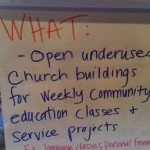 WHAT:
- Open underused
Church buildings
for weekly Community
education classes +
service projects
Ex. language classes, personal finan